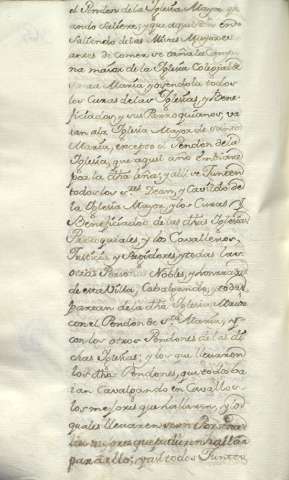 el Pendon de la Iglesia Mayor qu
ando saliere, y que aquel en do
saliendo de las Misas Mayores
antes de comer se taña la Campa
na maior de la Iglesia Colegial de
Santa Maria, y oyendola todos
los Curas de las Iglesias, y Bene
ficiados, y sus Parroquianos, va
ian a la Iglesia Mayor de Santa
Maria, excepto el Pendon de la
Iglesia, que aquel año
por la dha año; y alli se Junten
todos los Sres Dean, y Cavildo de
la Iglesia Mayor, y los Curas y
Beneficiados de las dhas Iglesias
Parroquiales, y los Cavalleros,
Justicia, y Regidores, y todas las
otras Personas Nobles, y honradas
de esta Villa, Cabalgando, y todos
partan de la dha Iglesia Maior
con el Pendon de Sta Maria, y
con los otros Pendones de las di
chas Iglesias; y los que llevaren
los dhos Pendones, que todos va
ian Cavalgando en Cavallos
los mejores que hallaren, y los
quales llevaren
los mejores que pudieren hallar
para ello; y asi todos Juntos